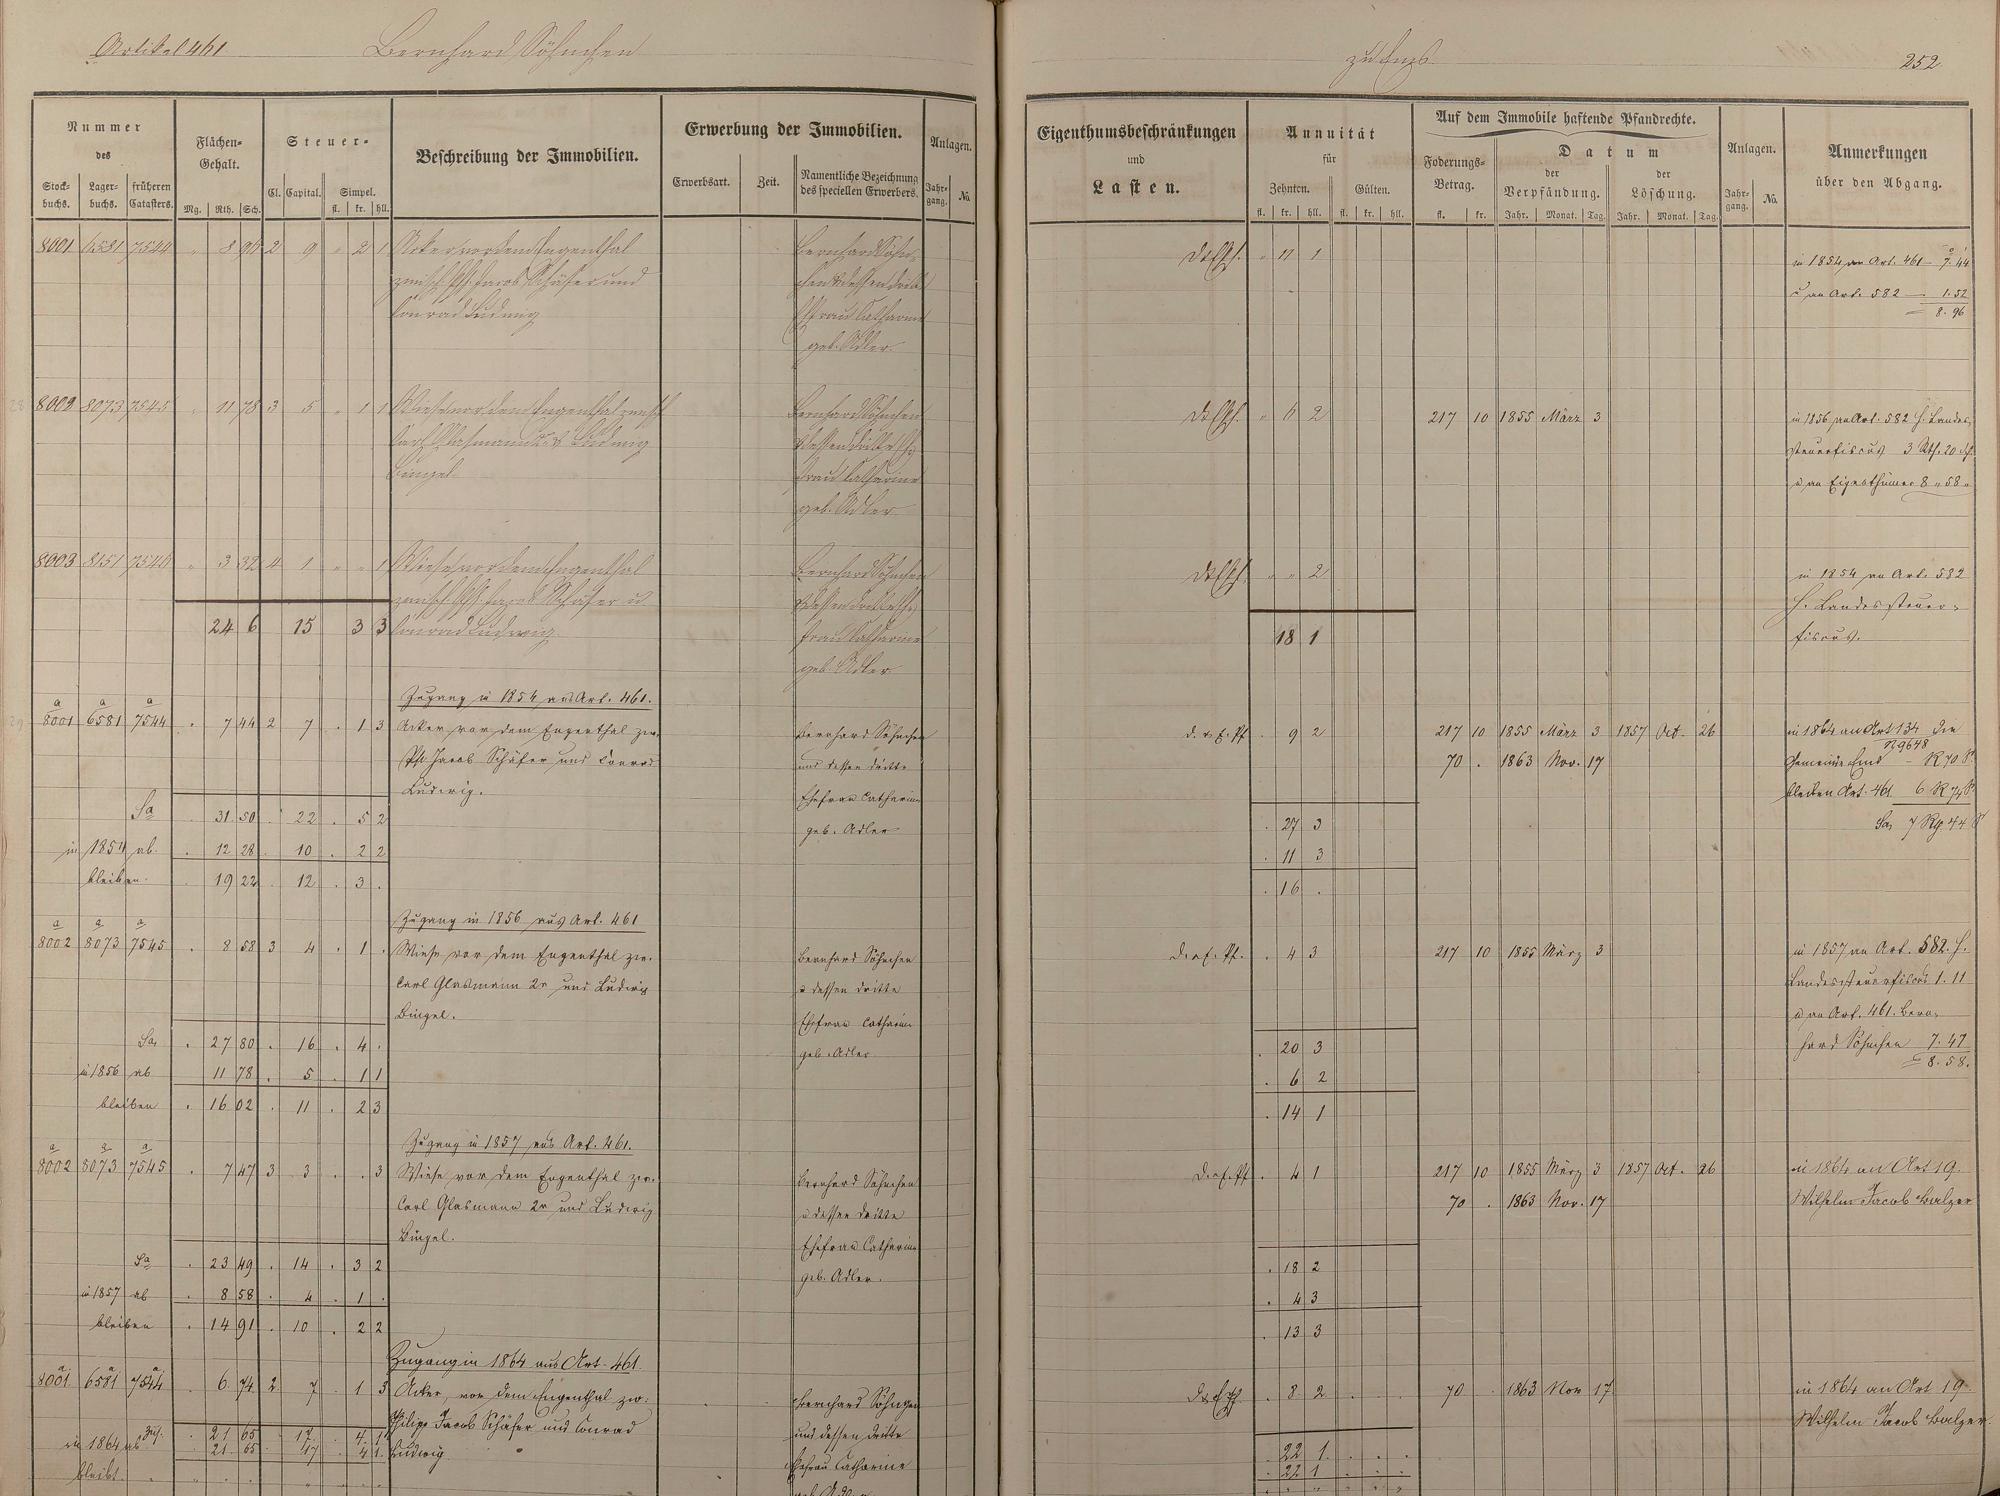 Artikel 461
Bernhard Söhnchen
zu Ems
252
Nummer des
Stockbuchs. Lagerbuchs. früheren Catasters.
Flächen-Gehalt.
Mg. Rth. Sch.
Steuer-
Cl. Capital. Simpel.
fl. kr. hll.
Beschreibung der Immobilien.
Erwerbung der Immobilien.
Erwerbsart. Zeit. Namentliche Bezeichnung des speciellen Erwerbers.
Anlagen.
Jahrgang. No.
Eigenthumsbeschränkungen
und
Lasten.
Annuität
für
Zehnten. Gülten.
fl. kr. hll. fl. kr. hll.
Auf dem Immobile haftende Pfandrechte.
Foderungs-Betrag.
fl. kr.
Datum
der Verpfändung. der Löschung.
Jahr. Monat. Tag. Jahr. Monat. Tag.
Anlagen.
Jahrgang. No.
Anmerkungen
über den Abgang.
8001 6581 7544 " 8 96 2 9 " 2 1 Acker vor dem Engenthal
zwisch. Ph. Jacob Schäfer und
Conrad Ludwig
Bernhard Söhn-
chen & dessen dritte
Ehefrau Catharine
geb. Adler.
" 11 1
in 1854 an Art. 461 — 7. 44
u an Art. 582 — 1. 52
= 8. 96
8002 8073 7545 " 11 78 3 5 " 1 1 Wiese vor dem Engenthal zwisch
Carl Glasmann 2r & Ludwig
Bingel
Bernhard Söhnchen
& dessen dritte Ehe-
frau Catharine
geb. Adler
" 6 2
217 10 1855 März 3
in 1856 an Art. 582 H. Landes-
steuerfiscus 3 Rth. 20 Sch.
u an Eigenthümer 8 " 58 "
8003 8151 7546 " 3 32 4 1 " " 1 Wiese vor dem Engenthal
zwisch Ph. Jacob Schäfer u
Conrad Ludwig.
Bernhard Söhnchen
& dessen dritte Ehe-
frau Catharine
geb. Adler
" " 2
in 1854 an Art. 582
H. Landessteuer-
fiscus.
24 6 15 3 3
18 1
Zugang in 1854 aus Art. 461.
8001 a 6581 a 7544 a . 7 44 2 7 . 1 3 Acker vor dem Engenthal zw.
Ph. Jacob Schäfer und Conrad
Ludwig.
Bernhard Söhnchen
und dessen dritte
Ehefrau Catharine
geb. Adler
d. v. E. Pf. . 9 2
217 10 1855 März 3 1857 Oct. 26
70 . 1863 Nov. 17
in 1864 an Art 134 die
N 9648
Gemeinde Ems — R 70 S.
bleiben Art. 461 6 R 74 S
Sa, 7 Rg 44 S
Sa . 31 50 . 22 . 5 2
in 1854 ab. . 12 28 . 10 . 2 2
bleiben. . 19 22 . 12 . 3 .
. 27 3
. 11 3
. 16 .
Zugang in 1856 aus Art. 461
8002 a 8073 a 7545 a . 8 58 3 4 . 1 . Wiese vor dem Engenthal zw.
Carl Glasmann 2r und Ludwig
Bingel.
Bernhard Söhnchen
u dessen dritte
Ehefrau Catharine
geb. Adler
d. v. E. Pf. . 4 3
217 10 1855 März 3
in 1857 an Art. 582. H.
Landessteuerfiscus 1. 11
u an Art. 461. Bern-
hard Söhnchen 7. 47
= 8. 58.
Sa, . 27 80 . 16 . 4 .
in 1856 ab 11 78 . 5 . 1 1
bleiben . 16 02 . 11 . 2 3
. 20 3
. 6 2
. 14 1
Zugang in 1857 aus Art. 461.
8002 a 8073 a 7545 a . 7 47 3 3 . . 3 Wiese vor dem Engenthal zw.
Carl Glasmann 2r und Ludwig
Bingel.
Bernhard Söhnchen
u dessen dritte
Ehefrau Catharine
geb. Adler.
d. v. E. Pf . 4 1
217 10 1855 März 3 1857 Oct. 26
70 . 1863 Nov. 17
in 1864 an Art 19.
Wilhelm Jacob Balzer
Sa . 23 49 . 14 . 3 2
in 1857 ab . 8 58 . 4 . 1 .
bleiben . 14 91 . 10 . 2 2
. 18 2
. 4 3
. 13 3
Zugang in 1864 aus Art. 461.
8001 a 6581 a 7544 a . 6 74 2 7 . 1 3 Acker, vor dem Engenthal zw:
Philipp Jacob Schäfer und Conrad
Ludwig
Bernhard Söhngen
und dessen dritte
Ehefrau Catharine
geb. Adler
. 8 2 . . .
70 . 1863 Nov 17
in 1864 an Art 19.
Wilhelm Jacob Balzer.
zus. . 21 65 . 17 . 4 1
in 1864 ab . 21 65 . 17 . 4 1
bleibt
. 22 1 . . .
. 22 1 . . .